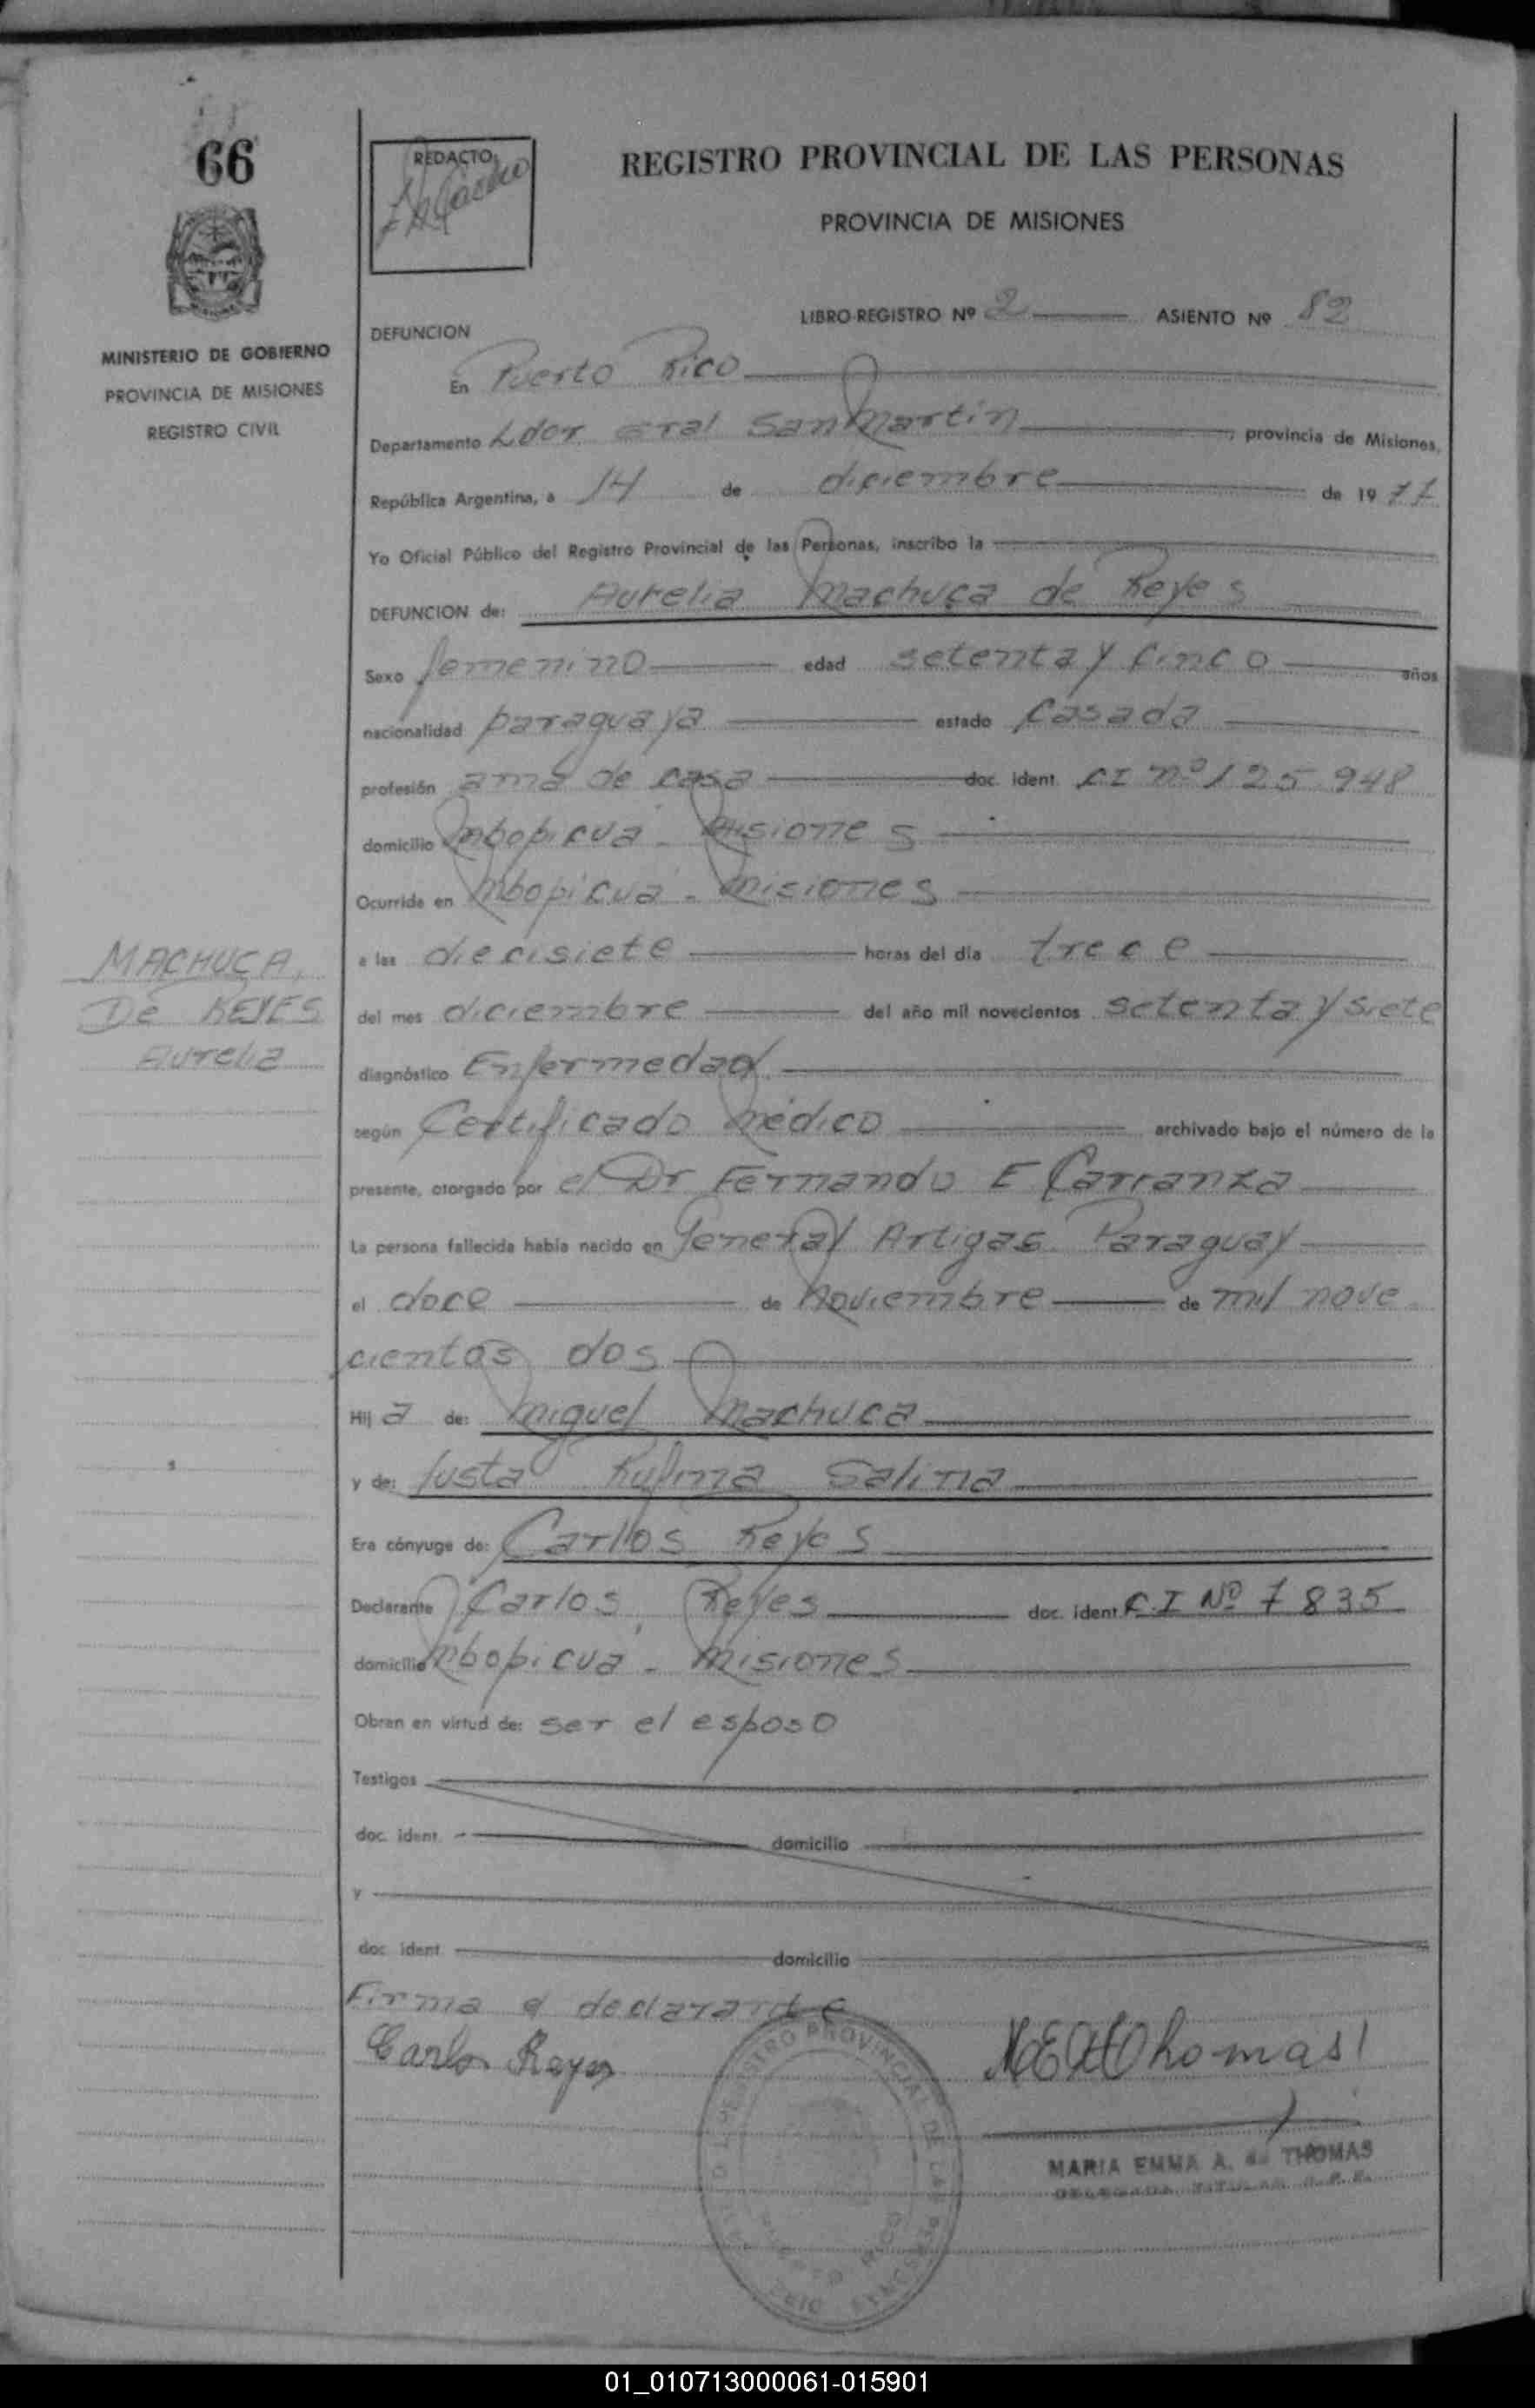 66
REDACTO
REGISTRO PROVINCIAL DE LAS PERSONAS
PROVINCIA DE MISIONES
MINISTERIO DE GOBIERNO
PROVINCIA DE MISIONES
REGISTRO CIVIL
LIBRO-REGISTRO Nº 2 ASIENTO Nº 82
DEFUNCION
En Puerto Rico
Departamento Ldor Gral San Martín, provincia de Misiones,
República Argentina, a 14 de diciembre de 19 77
Yo Oficial Público del Registro Provincial de las Personas, inscribo la
DEFUNCION de: Aurelia Machuca de Reyes
Sexo femenino edad setenta y cinco años
nacionalidad paraguaya estado casada
profesión ama de casa doc. ident. C.I nº 125.948
domicilio Mbopicuá - Misiones
Ocurrida en Mbopicuá - Misiones
a las diecisiete horas del día trece
del mes diciembre del año mil novecientos setenta y siete
diagnóstico Enfermedad
según Certificado Médico archivado bajo el número de la
presente, otorgado por el Dr Fernando E Carranza
La persona fallecida había nacido en General Artigas. Paraguay
el doce de Noviembre de mil nove
cientos dos
Hij a de: Miguel Machuca
y de: Justa Rufina Salina
Era cónyuge de: Carlos Reyes
Declarante Carlos Reyes doc. ident. C.I Nº 7835
domicilio Mbopicuá - Misiones
Obran en virtud de: ser el esposo
Testigos
doc. ident. domicilio
y
doc. ident. domicilio
MACHUCA,
De REYES
Aurelia
Firma d declarante
Carlos Reyes
REGISTRO PROVINCIAL DE LAS PERSONAS
PUERTO RICO
MARIA EMMA A. de THOMAS
DELEGADA TITULAR R.P.P.
01_010713000061-015901